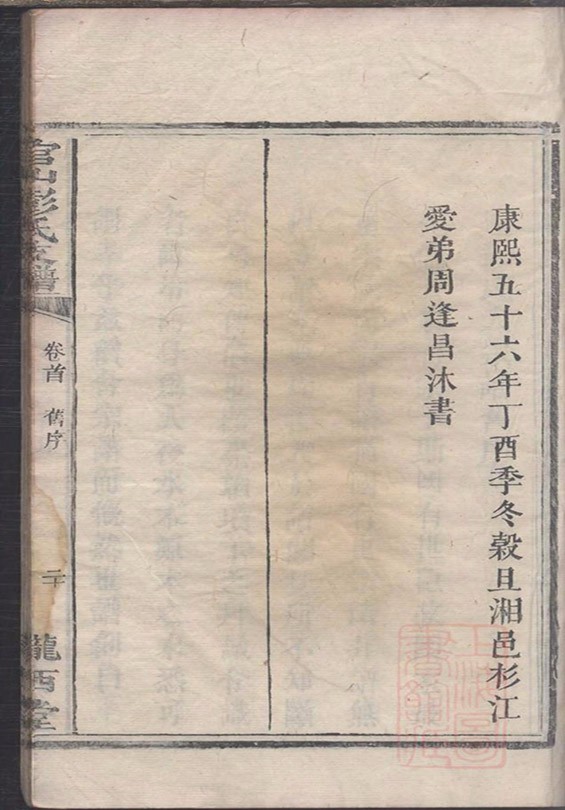 康熙五十六年丁酉季冬穀旦湘邑杉江
愛弟周逢昌沐書
官山彭氏支譜
卷首 舊序
二十
隴西堂